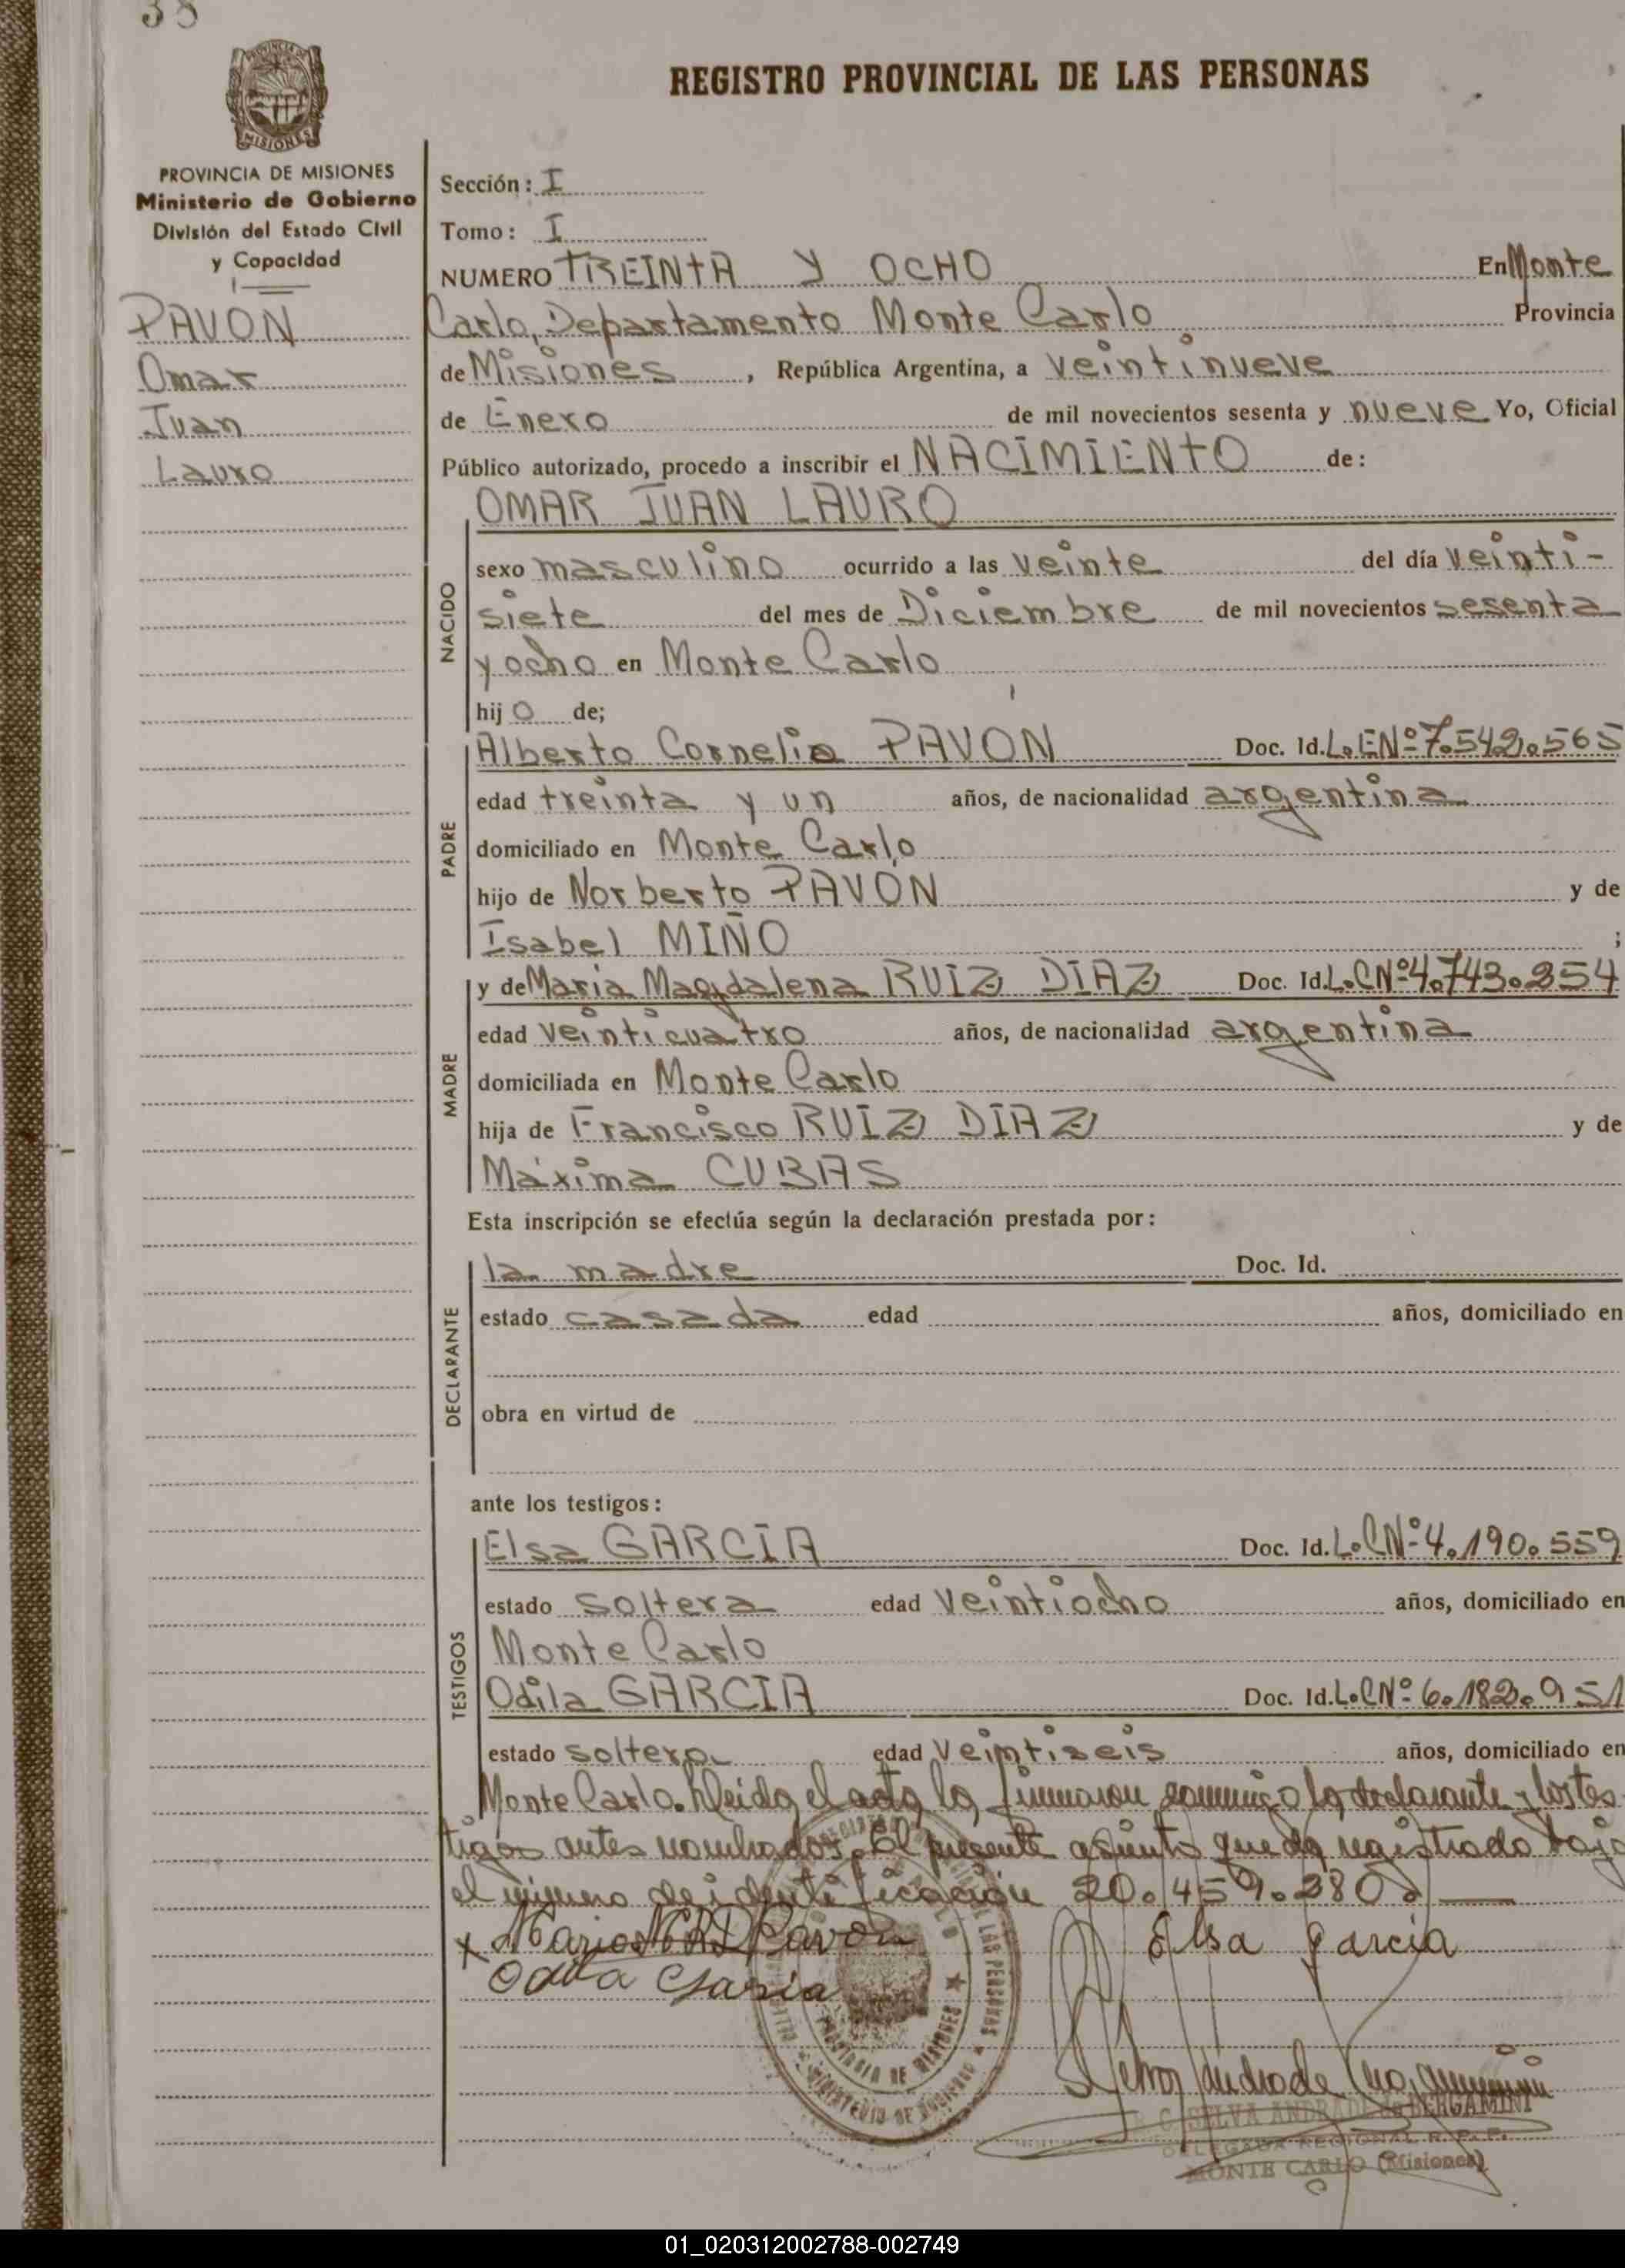 38
PROVINCIA DE MISIONES
Ministerio de Gobierno
División del Estado Civil
y Capacidad
PAVON
Omar
Juan
Lauro
REGISTRO PROVINCIAL DE LAS PERSONAS
Sección: I
Tomo: I
NUMERO TREINTA Y OCHO En Monte
Carlo, Departamento Monte Carlo Provincia
de Misiones, República Argentina, a veintinueve
de Enero de mil novecientos sesenta y nueve Yo, Oficial
Público autorizado, procedo a inscribir el NACIMIENTO de:
OMAR JUAN LAURO
NACIDO
sexo masculino ocurrido a las veinte del día veinti-
siete del mes de Diciembre de mil novecientos sesenta
y ocho en Monte Carlo
hijo de;
PADRE
Alberto Cornelio PAVON Doc. Id. L.E.Nº 7.542.565
edad treinta y un años, de nacionalidad argentina
domiciliado en Monte Carlo
hijo de Norberto PAVON y de
Isabel MIÑO ;
MADRE
y de Maria Magdalena RUIZ DIAZ Doc. Id. L.C.Nº 4.743.254
edad veinticuatro años, de nacionalidad argentina
domiciliada en Monte Carlo
hija de Francisco RUIZ DIAZ y de
Máxima CUBAS
Esta inscripción se efectúa según la declaración prestada por:
DECLARANTE
la madre Doc. Id.
estado casada edad años, domiciliado en
obra en virtud de
ante los testigos:
TESTIGOS
Elsa GARCIA Doc. Id. L.C.Nº 4.190.559
estado soltera edad veintiocho años, domiciliado en
Monte Carlo
Odila GARCIA Doc. Id. L.C.Nº 6.182.951
estado soltera edad veintiseis años, domiciliado en
Monte Carlo. Leida el acta la firmaron conmigo la declarante y los tes-
tigos antes nombrados. El presente asiento queda registrado bajo
el número de identificación 20.459.280
x Maria Pavon Elsa Garcia
Odila Garcia
PROVINCIA DE MISIONES
MINISTERIO DE GOBIERNO
Selva Andrade
C. SELVA ANDRADE de BERGAMINI
DELEGADA REGIONAL R. P. P.
MONTE CARLO (Misiones)
01_020312002788-002749